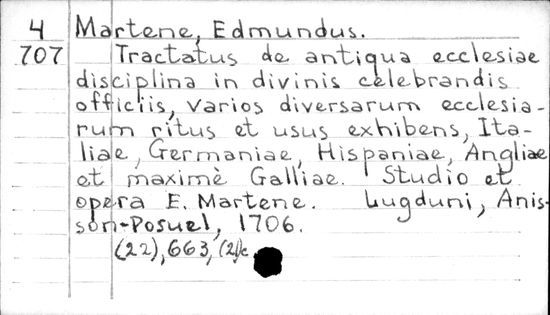 4 Martene, Edmundus.
707 Tractatus de antiqua ecclesiae
disciplina in divinis celebrandis
officiis, varios diversarum ecclesia-
rum ritus et usus exhibens, Ita-
liae, Germaniae, Hispaniae, Angliae
et maximè Galliae. Studio et
opera E. Martene. Lugduni, Anis-
son-Posuel, 1706.
(22), 663, (2)